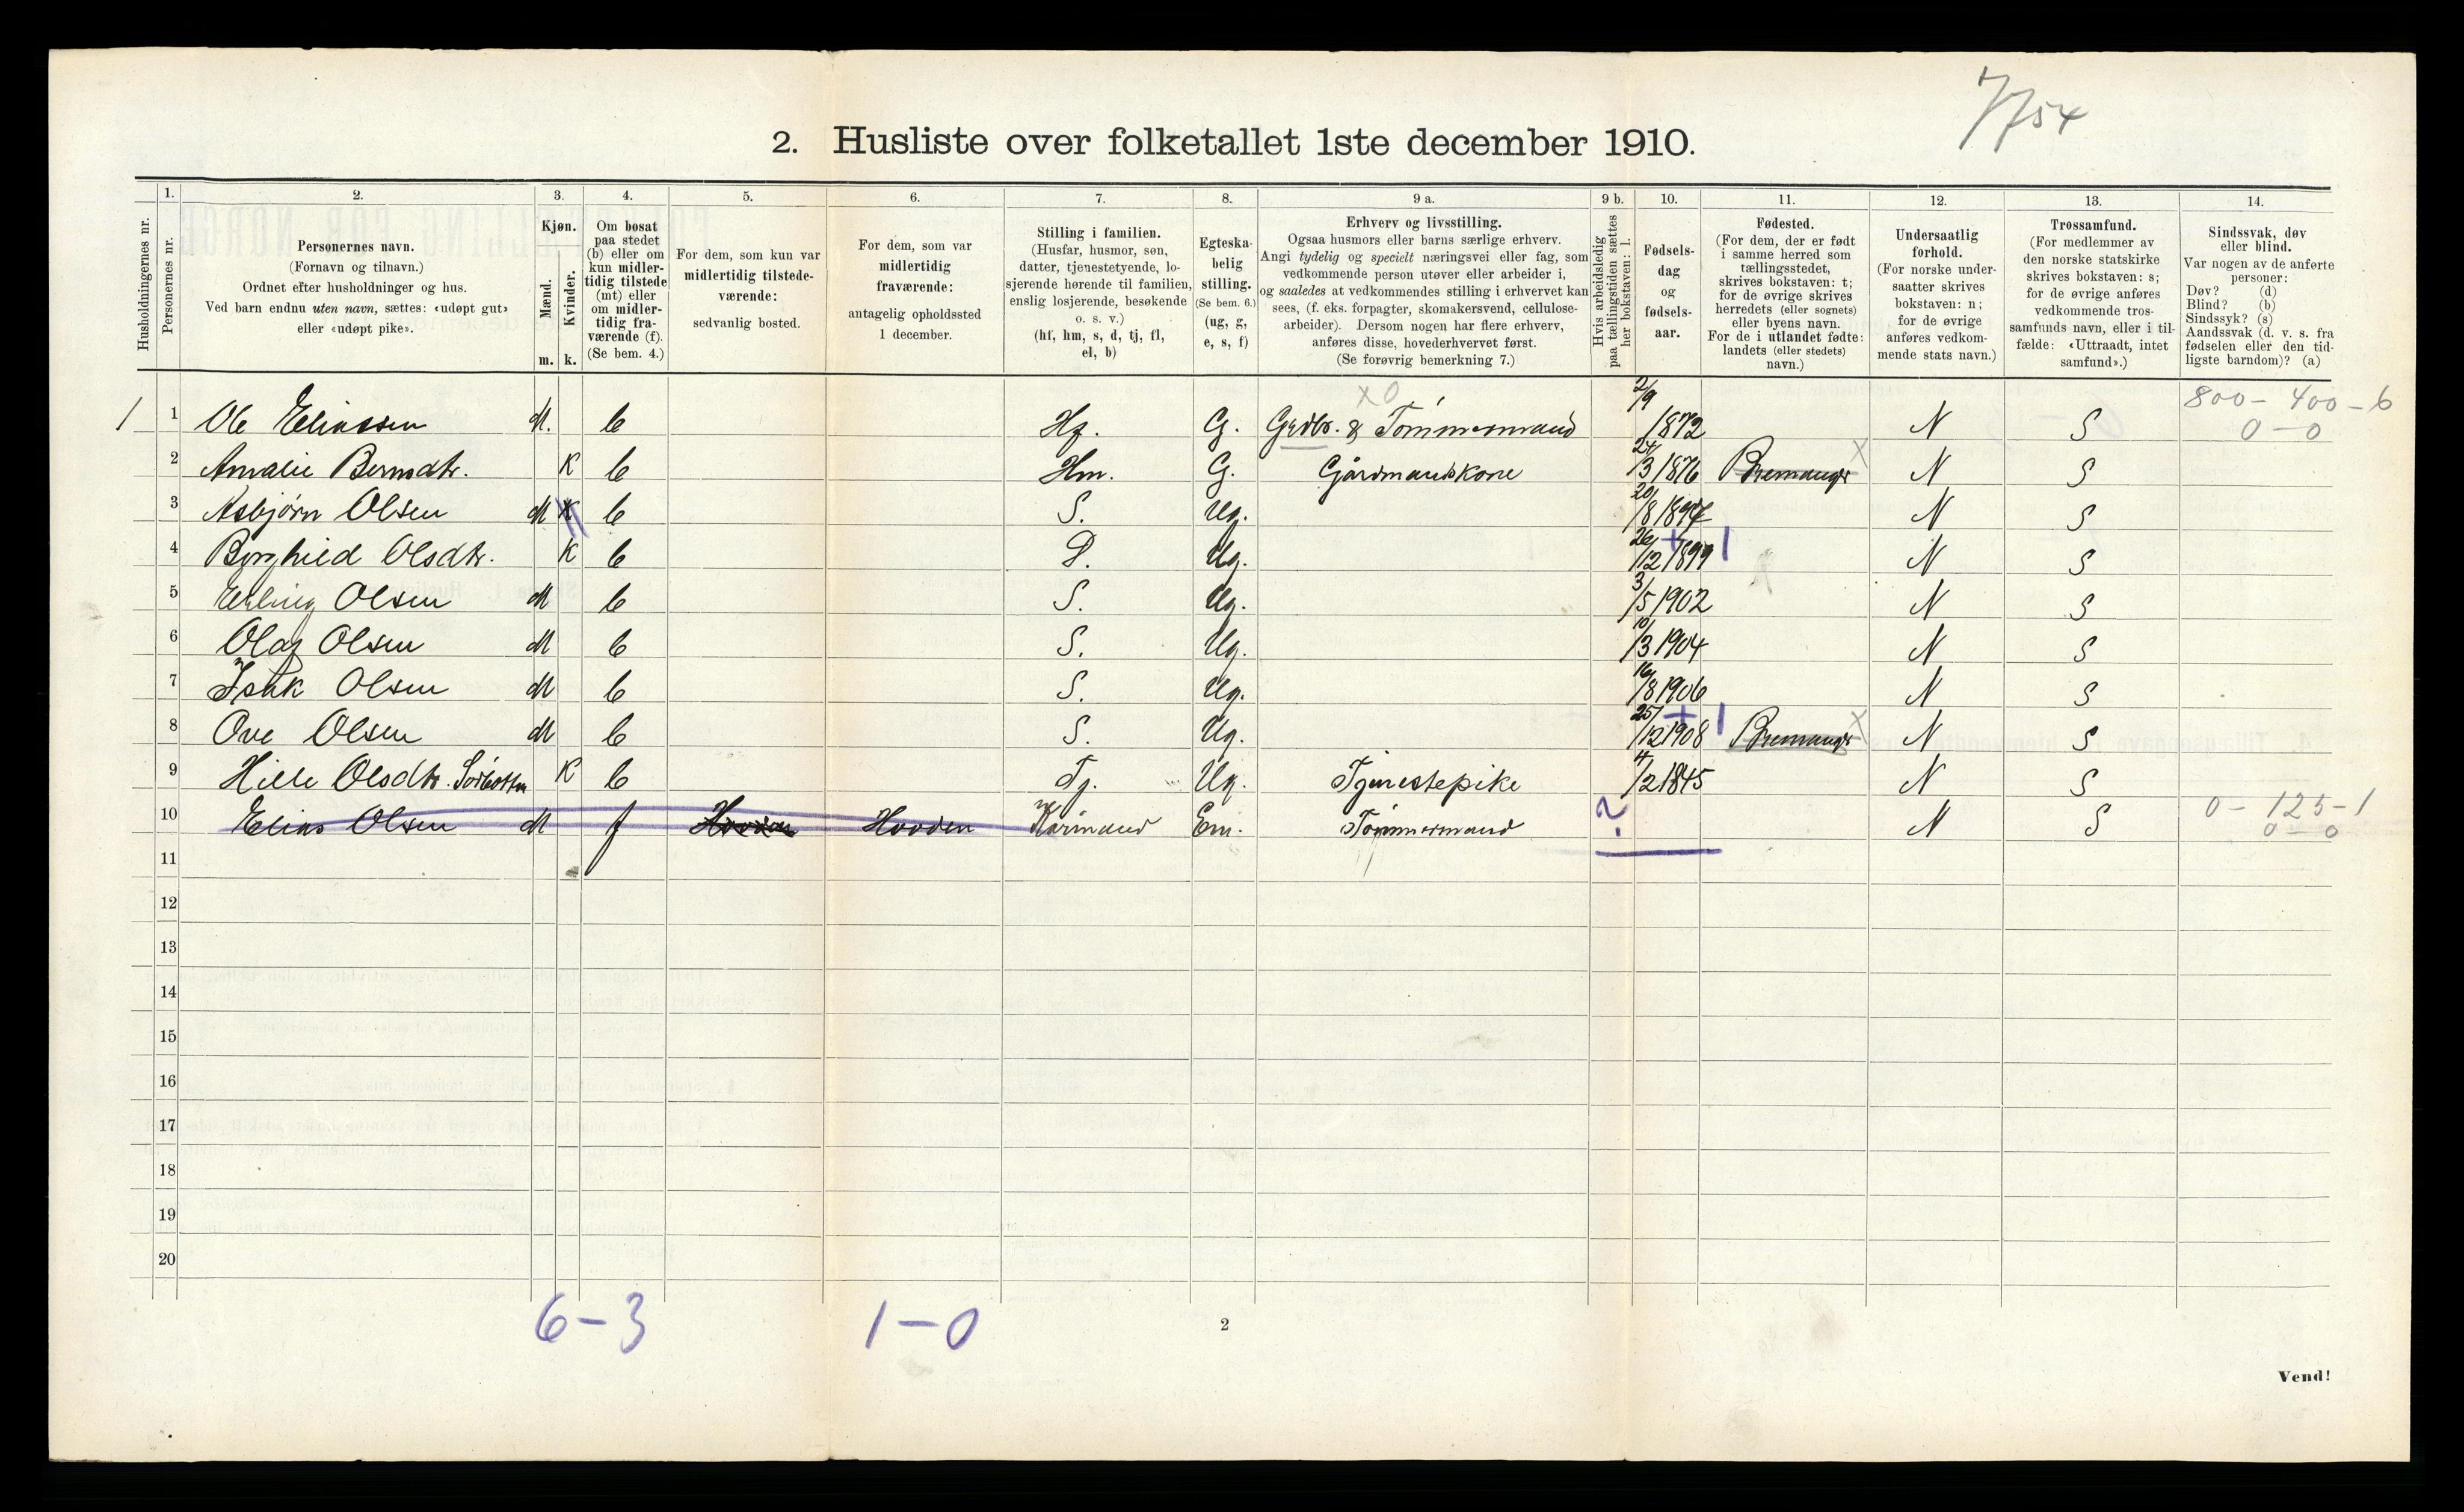 7754
2. Husliste over folketallet 1ste december 1910.
Husholdningernes nr.
1.
Personernes nr.
2.
Personernes navn.
(Fornavn og tilnavn.)
Ordnet efter husholdninger og hus.
Ved barn endnu uten navn, sættes: «udøpt gut»
eller «udøpt pike».
3.
Kjøn.
Mænd.
Kvinder.
m. k.
4.
Om bosat
paa stedet
(b) eller om
kun midler-
tidig tilstede
(mt) eller
om midler-
tidig fra-
værende (f).
(Se bem. 4.)
5.
For dem, som kun var
midlertidig tilstede-
værende:
sedvanlig bosted.
6.
For dem, som var
midlertidig
fraværende:
antagelig opholdssted
1 december.
7.
Stilling i familien.
(Husfar, husmor, søn,
datter, tjenestetyende, lo-
sjerende hørende til familien,
enslig losjerende, besøkende
o. s. v.)
(hf, hm, s, d, tj, fl,
el, b)
8.
Egteska-
belig
stilling.
(Se bem. 6.)
(ug, g,
e, s, f)
9 a.
Erhverv og livsstilling.
Ogsaa husmors eller barns særlige erhverv.
Angi tydelig og specielt næringsvei eller fag, som
vedkommende person utøver eller arbeider i,
og saaledes at vedkommendes stilling i erhvervet kan
sees, (f. eks. forpagter, skomakersvend, cellulose-
arbeider). Dersom nogen har flere erhverv,
anføres disse, hovederhvervet først.
(Se forøvrig bemerkning 7.)
9 b.
Hvis arbeidsledig
paa tællingstiden sættes
her bokstaven: l.
10.
Fødsels-
dag
og
fødsels-
aar.
11.
Fødested.
(For dem, der er født
i samme herred som
tællingsstedet,
skrives bokstaven: t;
for de øvrige skrives
herredets (eller sognets)
eller byens navn.
For de i utlandet fødte:
landets (eller stedets)
navn.)
12.
Undersaatlig
forhold.
(For norske under-
saatter skrives
bokstaven: n;
for de øvrige
anføres vedkom-
mende stats navn.)
13.
Trossamfund.
(For medlemmer av
den norske statskirke
skrives bokstaven: s;
for de øvrige anføres
vedkommende tros-
samfunds navn, eller i til-
fælde: «Uttraadt, intet
samfund».)
14.
Sindssvak, døv
eller blind.
Var nogen av de anførte
personer:
Døv? (d)
Blind? (b)
Sindssyk? (s)
Aandssvak (d. v. s. fra
fødselen eller den tid-
ligste barndom)? (a)
x0 800 - 400 - 6
1 1 Ole Eliassen M. b Hf. G. Grdbr. & Tömmermand 2/9 1872 N S 0 - 0
2 Amalie Berndtr. K b Hm. G. Gårdmandskone 24/3 1876 Bremanger X N S
3 Asbjørn Olsen M K b S. Ug. 20/8 1897 N S
4 Borghild Olsdtr. K b D. Ug. 26/12 1899 N S
5 Erling Olsen M b S. Ug. 3/5 1902 N S
6 Olaf Olsen M b S. Ug. 10/3 1904 N S
7 Isak Olsen M b S. Ug. 16/8 1906 N S
8 Ove Olsen M b S. Ug. 25/12 1908 Bremanger X N S
9 Hille Olsdtr. Sörbotten K b Tj. Ug. Tjenestepike 4/2 1845 N S
10 Elias Olsen M f Hovden Hovden Kårmand Em. Tömmermand ? N S 0 - 125 - 1
0 - 0
11
12
13
14
15
16
17
18
19
20
6 - 3 1 - 0
2
Vend!